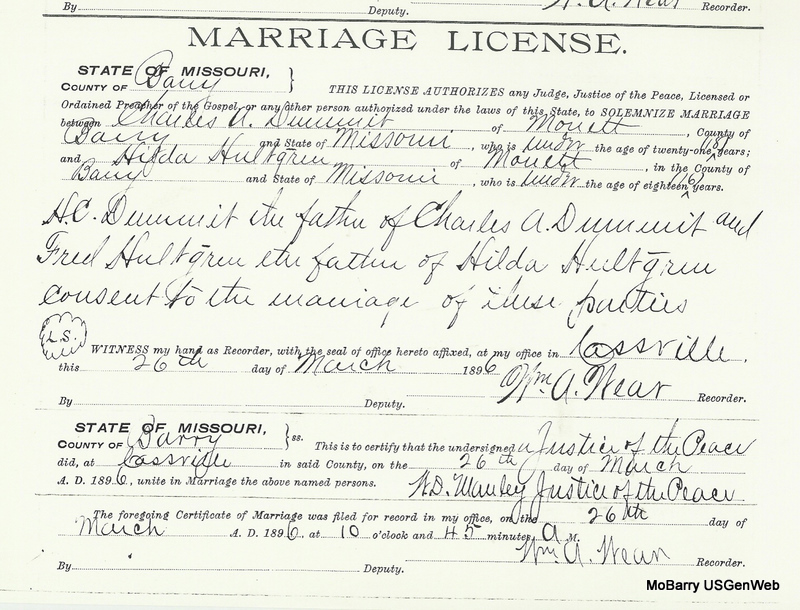 By Deputy. W. A. Wear Recorder.
MARRIAGE LICENSE.
STATE OF MISSOURI,
COUNTY OF Barry } THIS LICENSE AUTHORIZES any Judge, Justice of the Peace, Licensed or
Ordained Preacher of the Gospel, or any other person authorized under the laws of this State, to SOLEMNIZE MARRIAGE
between Charles A. Dummit of Monett, County of
Barry and State of Missouri, who is under the age of twenty-one (18) years;
and Hilda Hultgren of Monett, in the County of
Barry and State of Missouri, who is under the age of eighteen (16) years.
H.C. Dummit the father of Charles A. Dummit and
Fred Hultgren the father of Hilda Hultgren
consent to the marriage of these parties
L.S. WITNESS my hand as Recorder, with the seal of office hereto affixed, at my office in Cassville.
this 26th day of March 1896 Wm A. Wear Recorder.
By Deputy.
STATE OF MISSOURI,
COUNTY OF Barry } ss. This is to certify that the undersigned a Justice of the Peace
did, at Cassville in said County, on the 26th day of March
A. D. 1896, unite in Marriage the above named persons. Justice of the Peace
The foregoing Certificate of Marriage was filed for record in my office, on the 26th day of
March A. D. 1896, at 10 o'clock and 45 minutes A M.
Wm. A. Wear Recorder.
By Deputy.
MoBarry USGenWeb